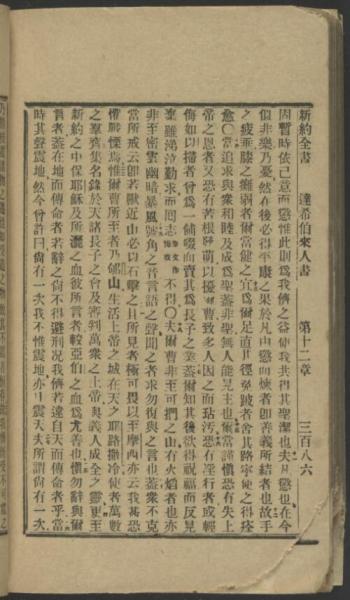 新約全書　達希伯來人書　第十二章　三百八六
因暫時依己意而懲惟此則爲我儕之益使我共得其聖潔也夫凡懲也在今
似非樂乃憂然在後必得平康之果於凡由懲而煉者即善義所結者也故手
之疲垂膝之癱弱者爾當健之宜爲爾足直其徑免跛者舍其路寧使之得痊
愈〇當追求與衆和睦及成爲聖蓋非聖無人能見主也爾當謹愼恐有失上
帝之恩者又恐有苦根萌以擾爾曹致多人因之而玷污恐有淫行者或輕
侮如以掃者曾爲一餔啜而賣其爲長子之業蓋爾知其後欲得祝福而反見
棄雖涕泣勤求而回志不得〇夫爾曹非至可捫之山有火熖者也亦
非至密雲幽暗暴風號角之音言語之聲聞之者求勿復與之言也蓋衆不克
當所戒云即若獸近山必以石擊之且所見者極可畏以至摩西亦云我甚恐
懼戰慄焉惟爾曹所至者乃郇山生活上帝之城在天之耶路撒冷使者萬數
之羣齊集名錄於天諸長子之會及審判萬衆之上帝與義人成全之靈更至
新約之中保耶穌及所灑之血彼所言者較亞伯之血爲尤善也愼勿辭與爾
言者蓋在地而傳命者若辭之尚不得避刑況我儕若違自天而傳命者乎當
時其聲震地然今曾許曰尚有一次我不惟震地亦且震天夫所謂尚有一次